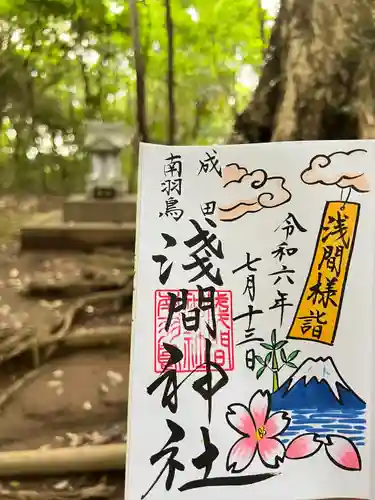 成田
南羽鳥
淺間神社
令和六年
七月十三日
浅間様詣